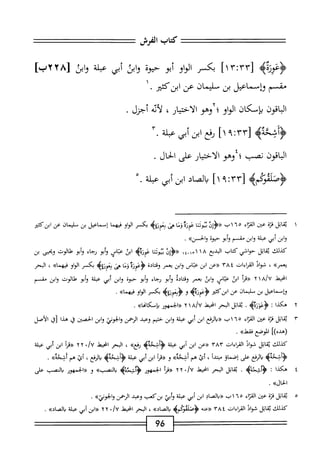 كتاب الفرش
﴿عَوِرَةٌ﴾ [١٣:٣٣] بكسر الواو أبو حيوة وابنُ أبي عبلة وابنُ [٢٢٨ب]
مقسم وإسماعيل بن سليمان عن ابن كثير .١
الباقون بإسكان الواو ؛٢ وهو الاختيار ، لأنّه أجزل .
﴿أَشِحَّةٌ﴾ [١٩:٣٣] رفع ابن أبي عبلة .٣
الباقون نصب ؛٤ وهو الاختيار على الحال .
﴿صَلَقُوكُم﴾ [١٩:٣٣] بالصاد ابن أبي عبلة .٥
١ يُقابل قرّة عين القرّاء ١٦٥ب «﴿إِنَّ بُيُوتَنَا عَوِرَةٌ وَمَا هِىَ بِعَوِرَةٍ﴾ بكسر الواو فيهما إسماعيل بن سليمان عن ابن كثير
وابن أبي عبلة وابن مقسم وأبو حيوة والحسن» .
كذلك يُقابل حواشي كتاب البديع ١١٨ «﴿إِنَّ بُيُوتَنَا عَوِرَةٌ﴾ ابنُ عبّاس وأبو رجاء وأبو طالوت ويحيى بن
يعمر» ، شواذّ القراءات ٣٨٤ «عن ابن عبّاس وابن يعمر وقتادة ﴿عَوِرَةٌ وَمَا هِىَ بِعَوِرَةٍ﴾ بكسر الواو فيهما» ، البحر
المحيط ٢١٨/٧ «قرأ ابنُ عبّاسٍ وابنُ يعمر وقتادةُ وأبو رجاء وأبو حيوة وابن أبي عبلة وأبو طالوت وابن مقسم
وإسماعيل بن سليمان عن ابن كثير ﴿عَوِرَةٌ﴾ و ﴿بِعَوِرَةٍ﴾ بكسر الواو فيهما» .
٢ هكذا : ﴿عَوْرَةٌ﴾ . يُقابل البحر المحيط ٢١٨/٧ «الجمهور بإسكانها» .
٣ يُقابل قرّة عين القرّاء ١٦٥ب «بالرفع ابن أبي عبلة وابن خثيم وعبد الرحمن والجونيّ وابن الحصين في هذا [في الأصل
(هذه)] الموضع فقط» .
كذلك يُقابل شواذّ القراءات ٣٨٣ «عن ابن أبي عبلة ﴿أَشِحَّةٌ﴾ رفع» ، البحر المحيط ٢٢٠/٧ «قرأ ابن أبي عبلة
﴿أَشِحَّةٌ﴾ بالرفع على إضمار مبتدأ ، أيْ هم أَشِحَّةٌ» و «قرأ ابن أبي عبلة ﴿أَشِحَّةٌ﴾ بالرفع ، أيْ هم أَشِحَّةٌ» .
٤ هكذا : ﴿أَشِحَّةً﴾ . يُقابل البحر المحيط ٢٢٠/٧ «قرأ الجمهور ﴿أَشِحَّةً﴾ بالنصب» و «الجمهور بالنصب على
الحال» .
٥ يُقابل قرّة عين القرّاء ١٦٥ب «بالصاد ابن أبي عبلة وأُبَيّ بن كعب وعبد الرحمن والجونيّ» .
كذلك يُقابل شواذّ القراءات ٣٨٤ «عنه ﴿صَلَقُوكُم﴾ بالصاد» ، البحر المحيط ٢٢٠/٧ «ابن أبي عبلة بالصاد» .
96